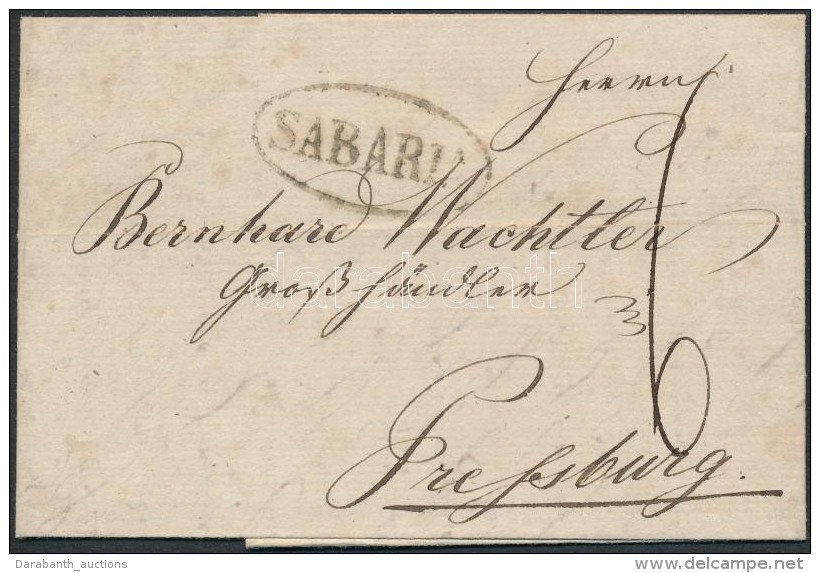 Herrn
SABARIA
Bernhard Wachtler
Großhändler
Pressburg.
6
darabanth
Darabanth_auctions
delcampe.net